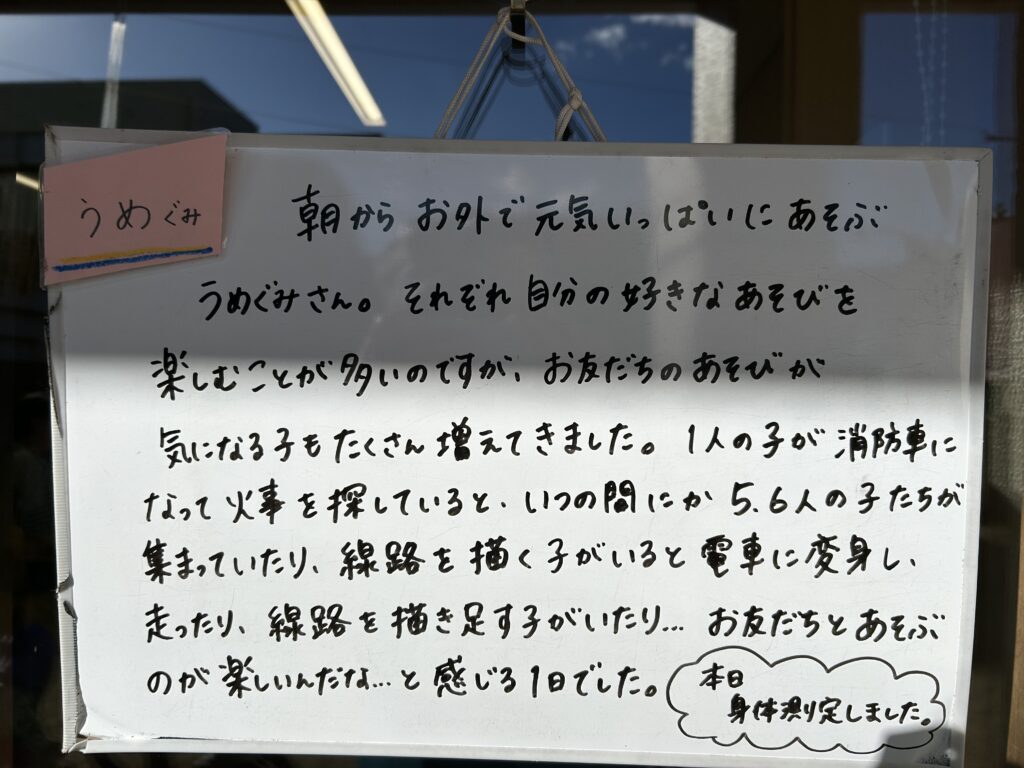 うめぐみ
朝からお外で元気いっぱいにあそぶ
うめぐみさん。それぞれ自分の好きなあそびを
楽しむことが多いのですが、お友だちのあそびが
気になる子もたくさん増えてきました。1人の子が消防車に
なって火事を探していると、いつの間にか5.6人の子たちが
集まっていたり、線路を描く子がいると電車に変身し、
走ったり、線路を描き足す子がいたり…お友だちとあそぶ
のが楽しいんだな…と感じる1日でした。
本日
身体測定しました。